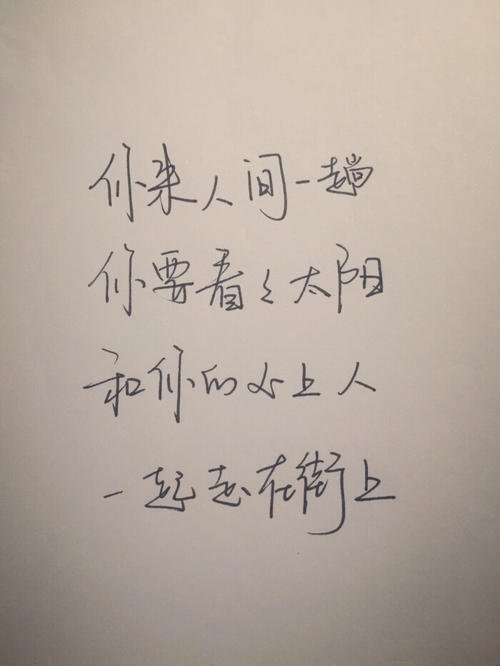 你来人间一趟
你要看々太阳
和你的心上人
一起走在街上